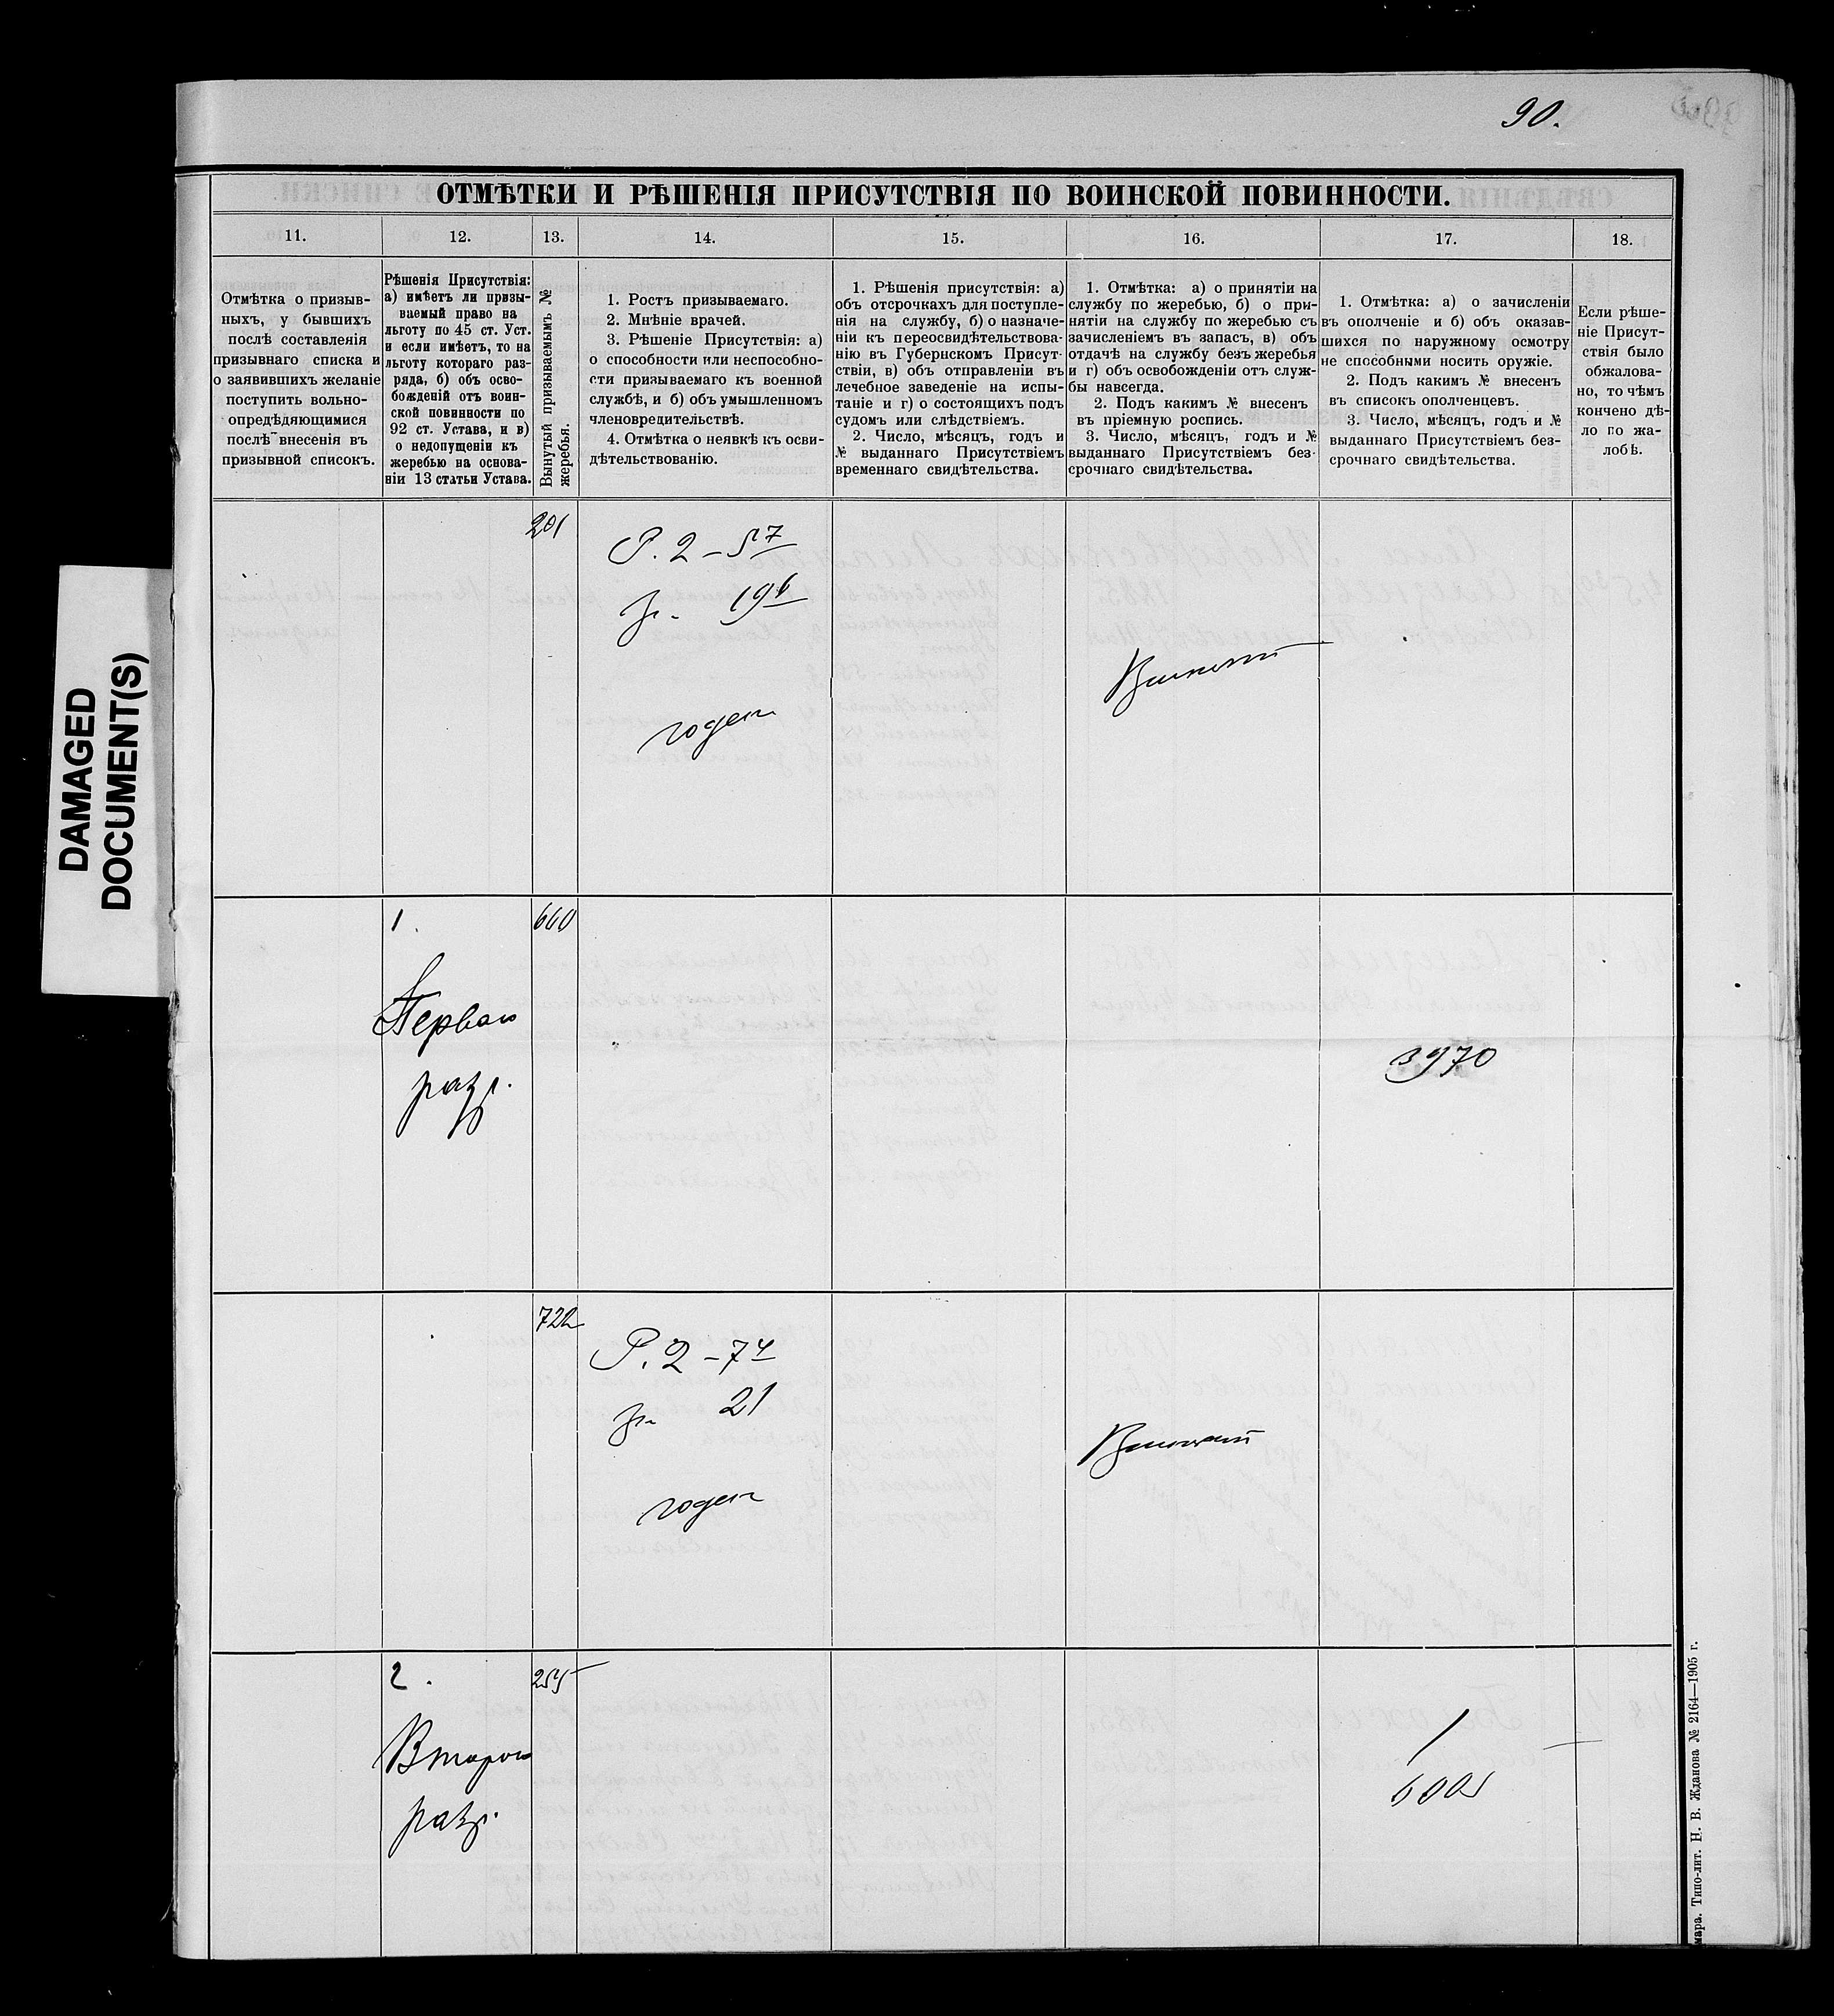 90.
ОТМѢТКИ И РѢШЕНІЯ ПРИСУТСТВІЯ ПО ВОИНСКОЙ ПОВИННОСТИ.
11.
12.
13.
14.
15.
16.
17.
18.
Отмѣтка о призыв-
ныхъ, у бывшихъ
послѣ составленія
призывнаго списка и
о заявившихъ желаніе
поступить вольно-
опредѣляющимися
послѣ внесенія въ
призывной списокъ.
Рѣшенія Присутствія:
а) имѣетъ ли призы-
ваемый право на
льготу по 45 ст. Уст.
и если имѣетъ, то на
льготу котораго раз-
ряда, б) объ осво-
божденій отъ воин-
ской повинности по
92 ст. Устава, и в)
о недопущеніи къ
жеребью на основа-
ніи 13 статьи Устава.
Вынутый призываемымъ №
жеребья.
1. Ростъ призываемаго.
2. Мнѣніе врачей.
3. Рѣшеніе Присутствія: а)
о способности или неспособно-
сти призываемаго къ военной
службѣ, и б) объ умышленномъ
членовредительствѣ.
4. Отмѣтка о неявкѣ къ осви-
дѣтельствованію.
1. Рѣшенія присутствія: а)
объ отсрочкахъ для поступле-
нія на службу, б) о назначе-
ніи къ переосвидѣтельствова-
нію въ Губернскомъ Присут-
ствіи, в) объ отправленіи въ
лечебное заведеніе на испы-
таніе и г) о состоящихъ подъ
судомъ или слѣдствіемъ.
2. Число, мѣсяцъ, годъ и
№ выданнаго Присутствіемъ
временнаго свидѣтельства.
1. Отмѣтка: а) о принятіи на
службу по жеребью, б) о при-
нятіи на службу по жеребью съ
зачисленіемъ въ запасъ, в) объ
отдачѣ на службу безъ жеребья
и г) объ освобожденіи отъ служ-
бы навсегда.
2. Подъ какимъ № внесенъ
въ пріемную роспись.
3. Число, мѣсяцъ, годъ и №
выданнаго Присутствіемъ без-
срочнаго свидѣтельства.
1. Отмѣтка: а) о зачисленіи
въ ополченіе и б) объ оказав-
шихся по наружному осмотру
не способными носить оружіе.
2. Подъ какимъ № внесенъ
въ списокъ ополченцевъ.
3. Число, мѣсяцъ, годъ и №
выданнаго Присутствіемъ без-
срочнаго свидѣтельства.
Если рѣше-
ніе Присут-
ствія было
обжалова-
но, то чѣмъ
кончено дѣ-
ло по жа-
лобѣ.
201
Р. 2 – 5 7
гр. 19 6
годен
1
660
Первой
разр.
3970
722
Р. 2 – 7 4
гр. 21
годен
2.
Второй
разр.
мара. Типо-лит. Н. В. Жданова № 2164—1905 г.
DAMAGED
DOCUMENT(S)